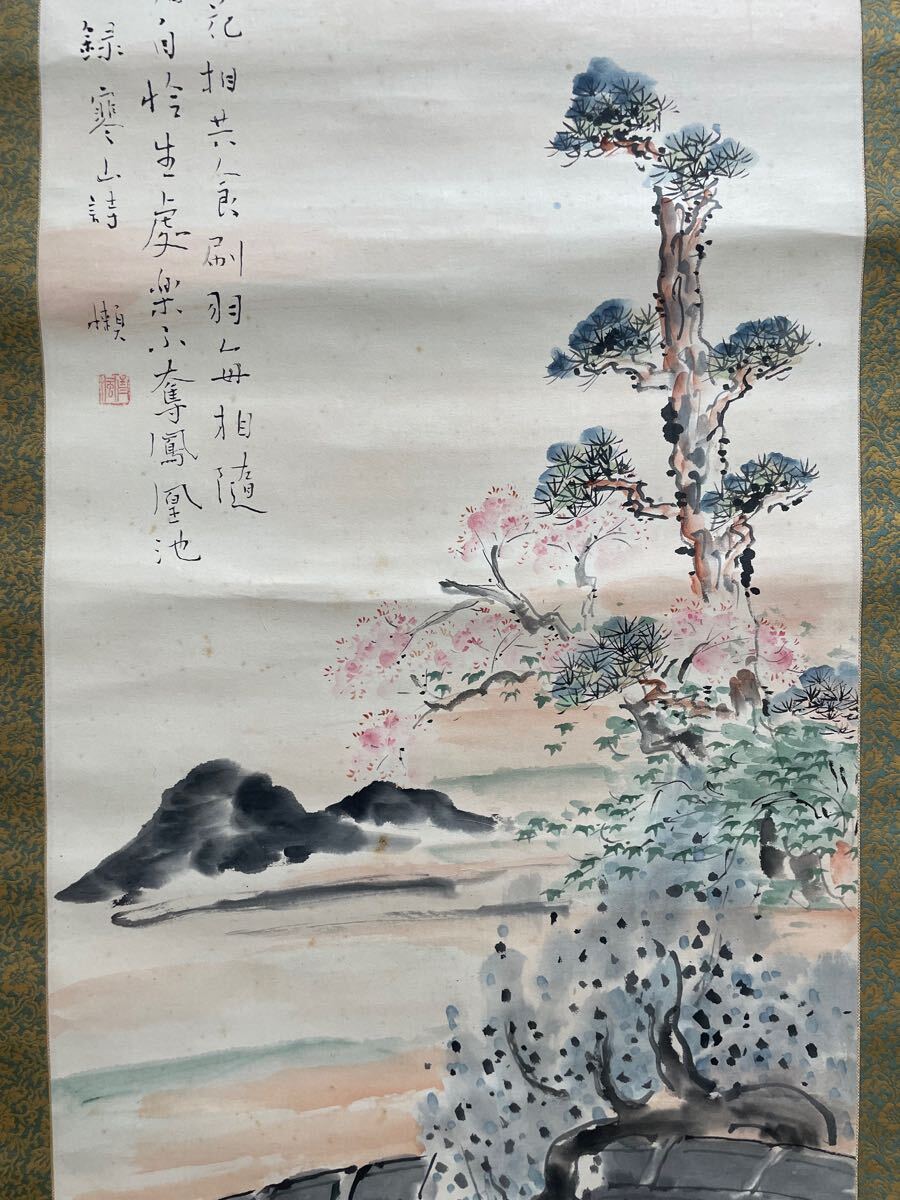 花相共食刷羽每相隨
自怜生處樂不奪鳳凰池
錄寒山詩
懶